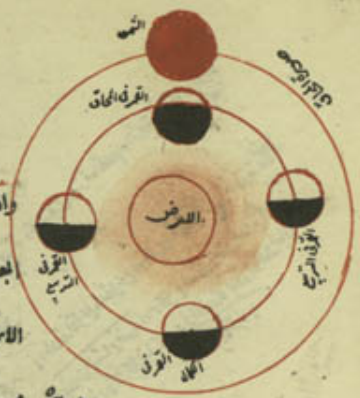 الشمس
القمر في المحاق
الارض
القمر في
التربيع
القمر في التربيع
القمر في
الكمال